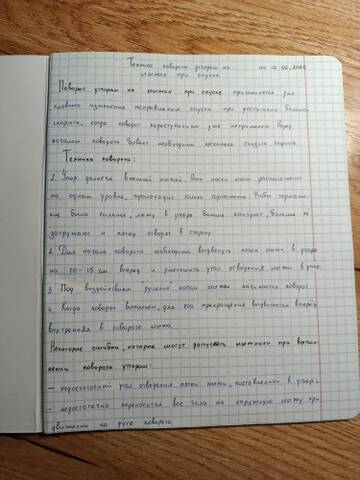 Техника поворота упором на на 12.02.2026
лыжах при спуске.
Поворот упором на лыжах при спуске применяется для
плавного изменения направления спуска при достаточно большой
скорости, когда поворот переступанием уже неприменим. Перед
началом поворота бывает необходимо несколько
Техника поворота:
1. Упор делается внешней лыжей. Пока носки лыж расположены
на одном уровне, происходит только торможение. Чтобы торможе-
ние было сильнее, лыжу в упоре больше кантуют, больше её
загружают и пятку отводят в сторону.
2. Для начала поворота необходимо выдвинуть носок лыжи в упоре
на 10-15 см вперёд и уменьшить угол отведения лыжи в упор.
3. Под воздействием лыжи начинается поворот.
4. Когда поворот выполнен, для его прекращения выдвигается вперёд
внутренняя к повороте лыжа.
Некоторые ошибки, которые могут допускать лыжники при выпол-
нении поворота упором:
- недостаточный угол отведения пятки лыжи, поставленной в упор;
- недостаточно переносится вес тела на наружную лыжу при
движении по дуге поворота.